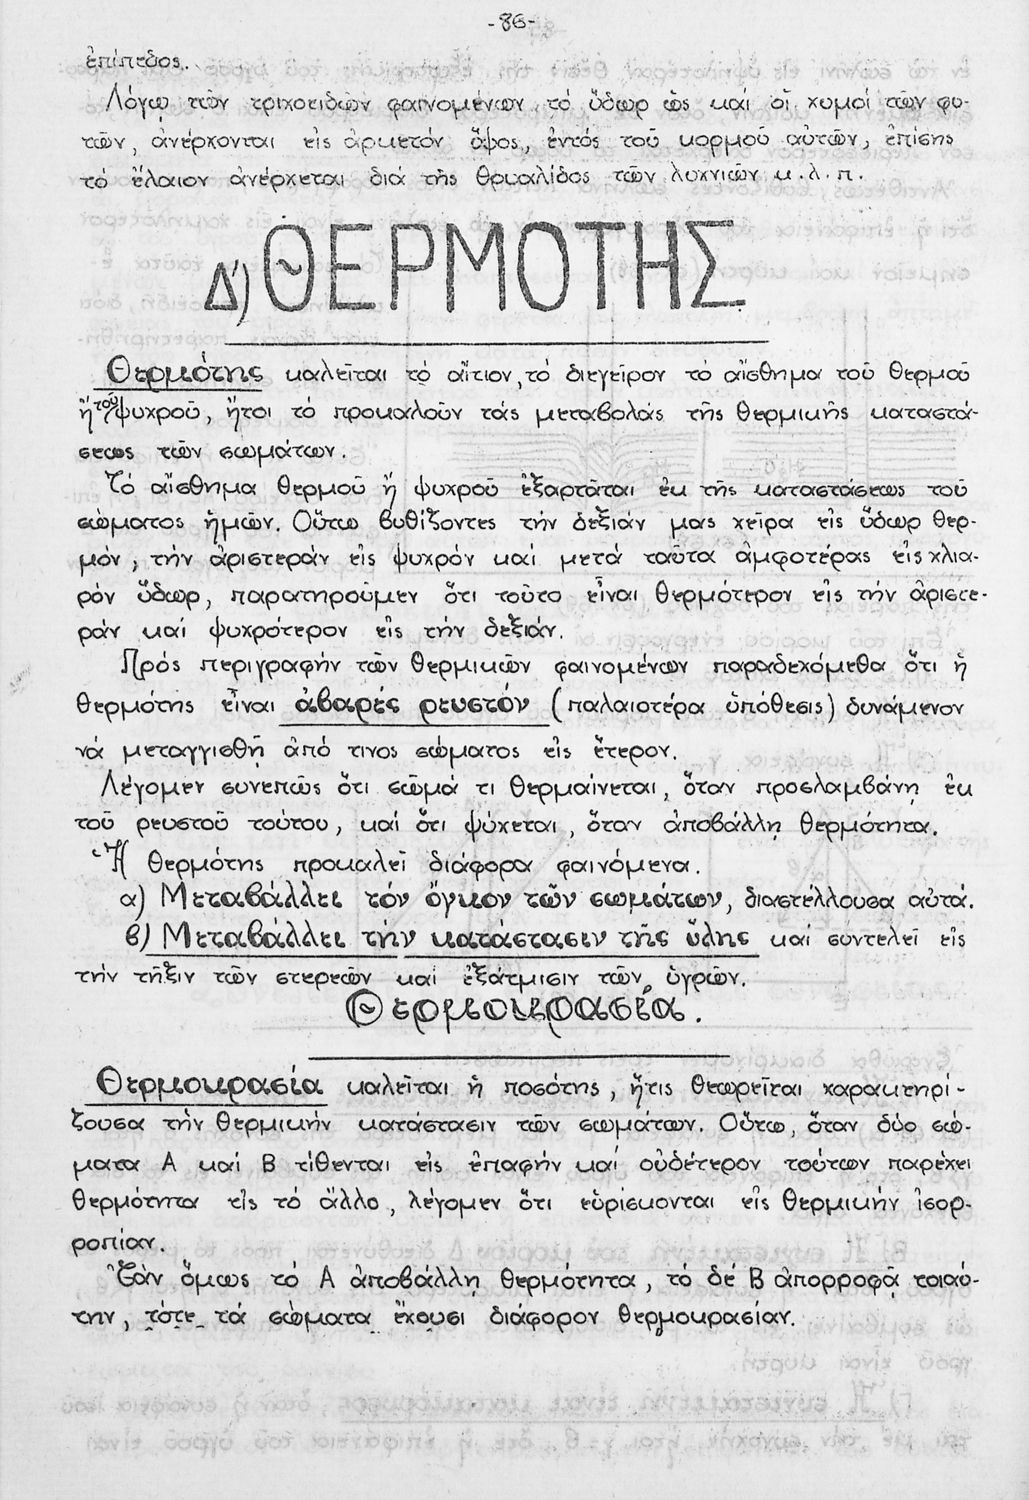 -86-
ἐπίπεδος.
Λόγῳ τῶν τριχοειδῶν φαινομένων, τό ὕδωρ ὡς καί οἱ χυμοί τῶν φυ-
τῶν, ἀνέρχονται εἰς ἀρκετόν ὕψος, ἐντός τοῦ κορμοῦ αὐτῶν, ἐπίσης
τό ἔλαιον ἀνέρχεται διά τῆς θρυαλίδος τῶν λυχνιῶν κ.λ.π.
Δ') ΘΕΡΜΟΤΗΣ
Θερμότης καλεῖται τό αἴτιον, τό διεγεῖρον τό αἴσθημα τοῦ θερμοῦ
ἤ τοῦ ψυχροῦ, ἤτοι τό προκαλοῦν τάς μεταβολάς τῆς θερμικῆς καταστά-
σεως τῶν σωμάτων.
Τό αἴσθημα θερμοῦ ἤ ψυχροῦ ἐξαρτᾶται ἐκ τῆς καταστάσεως τοῦ
σώματος ἡμῶν. Οὕτω βυθίζοντες τήν δεξιάν μας χεῖρα εἰς ὕδωρ θερ-
μόν, τήν ἀριστεράν εἰς ψυχρόν καί μετά ταῦτα ἀμφοτέρας εἰς χλια-
ρόν ὕδωρ, παρατηροῦμεν ὅτι τοῦτο εἶναι θερμότερον εἰς τήν ἀριστε-
ράν καί ψυχρότερον εἰς τήν δεξιάν.
Πρός περιγραφήν τῶν θερμικῶν φαινομένων παραδεχόμεθα ὅτι ἡ
θερμότης εἶναι ἀβαρές ρευστόν (παλαιοτέρα ὑπόθεσις) δυνάμενον
νά μεταγγισθῇ ἀπό τινος σώματος εἰς ἕτερον.
Λέγομεν συνεπῶς ὅτι σῶμά τι θερμαίνεται, ὅταν προσλαμβάνῃ ἐκ
τοῦ ρευστοῦ τούτου, καί ὅτι ψύχεται, ὅταν ἀποβάλλῃ θερμότητα.
Ἡ θερμότης προκαλεῖ διάφορα φαινόμενα.
α) Μεταβάλλει τόν ὄγκον τῶν σωμάτων, διαστέλλουσα αὐτά.
β) Μεταβάλλει τήν κατάστασιν τῆς ὕλης καί συντελεῖ εἰς
τήν τῆξιν τῶν στερεῶν καί ἐξάτμισιν τῶν ὑγρῶν.
Θερμοκρασία.
Θερμοκρασία καλεῖται ἡ ποσότης, ἥτις θεωρεῖται χαρακτηρί-
ζουσα τήν θερμικήν κατάστασιν τῶν σωμάτων. Οὕτω, ὅταν δύο σώ-
ματα Α καί Β τίθενται εἰς ἐπαφήν καί οὐδέτερον τούτων παρέχει
θερμότητα εἰς τό ἄλλο, λέγομεν ὅτι εὑρίσκονται εἰς θερμικήν ἰσορ-
ροπίαν.
Ἐάν ὅμως τό Α ἀποβάλλῃ θερμότητα, τό δέ Β ἀπορροφᾷ τοιαύ-
την, τότε τά σώματα ἔχουσι διάφορον θερμοκρασίαν.